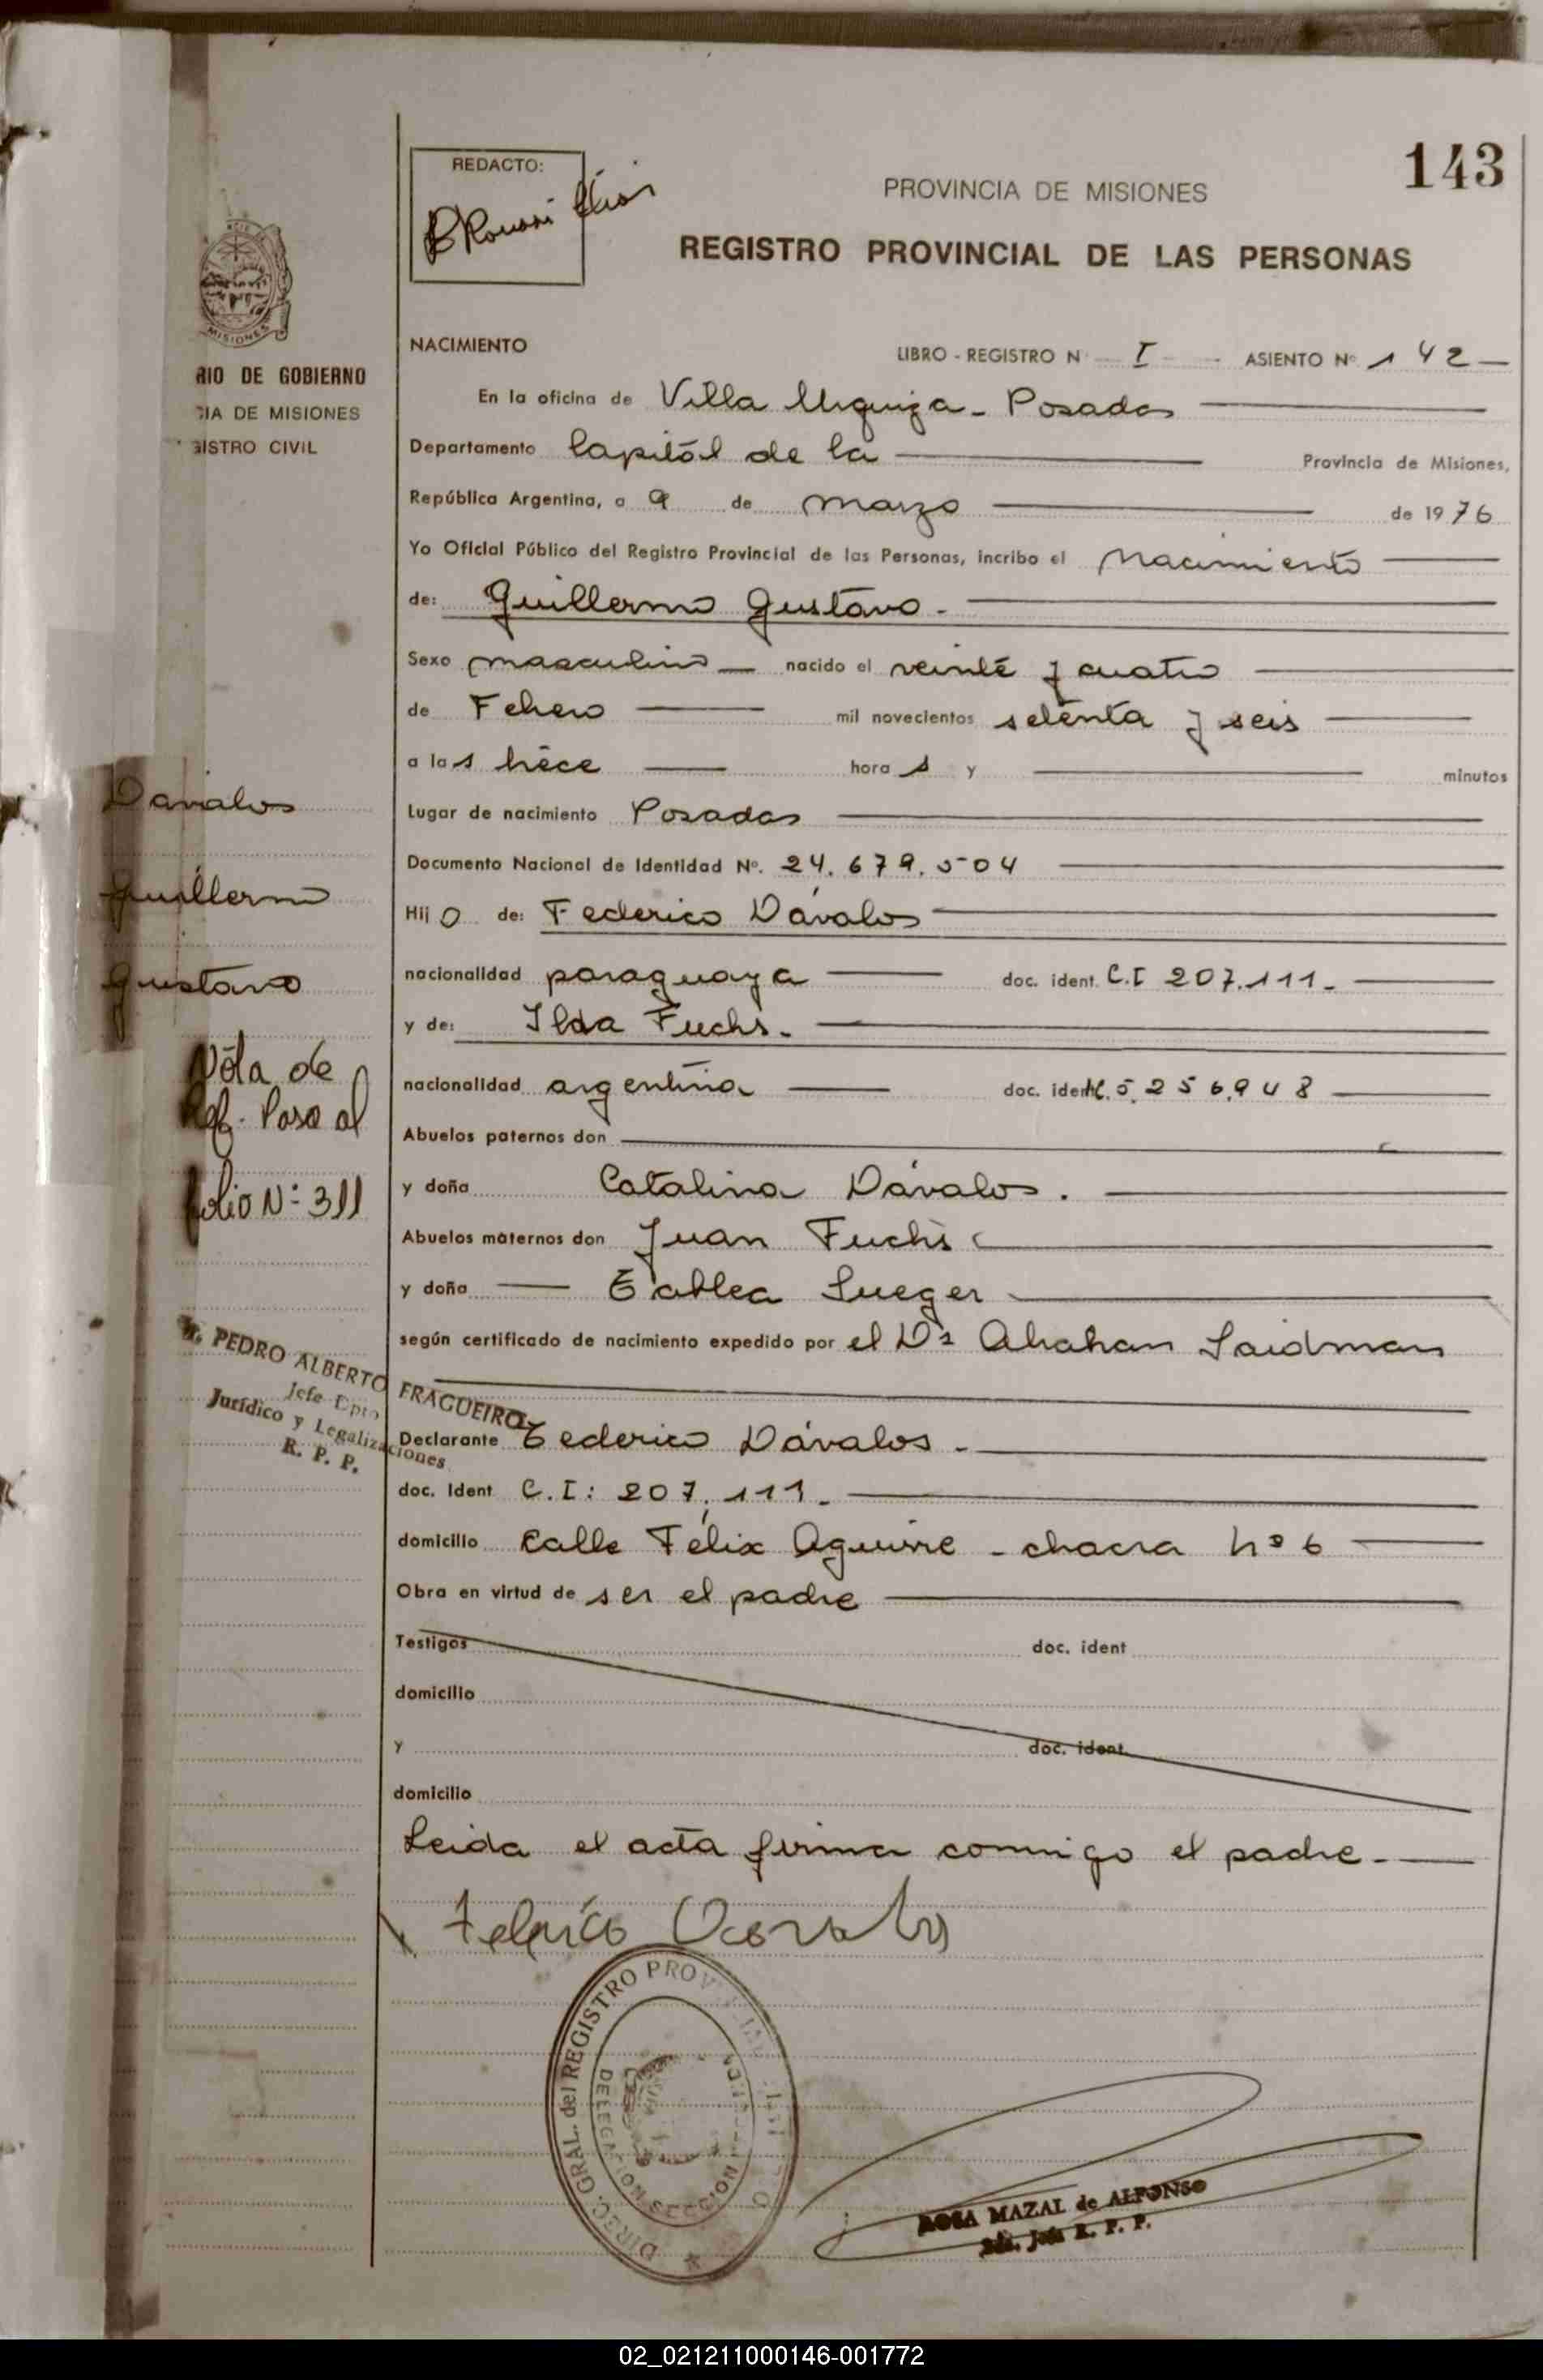 143
REDACTO:
PROVINCIA DE MISIONES
REGISTRO PROVINCIAL DE LAS PERSONAS
MISIONES
RIO DE GOBIERNO
IA DE MISIONES
ISTRO CIVIL
NACIMIENTO
LIBRO - REGISTRO N I ASIENTO Nº 142
En la oficina de Villa Urquiza - Posadas
Departamento Capitál de la Provincia de Misiones,
República Argentina, a 9 de marzo de 1976
Yo Oficial Público del Registro Provincial de las Personas, incribo el Nacimiento
de: Guillermo Gustavo.-
Sexo masculino nacido el veinte y cuatro
de Febrero mil novecientos setenta y seis
a las trece horas y minutos
Lugar de nacimiento Posadas
Documento Nacional de Identidad Nº. 24.679.504
Hijo de: Federico Dávalos
nacionalidad paraguaya doc. ident. C.I 207.111.-
y de: Ilda Fuchs.-
nacionalidad argentina doc. ident. 5.256.948
Abuelos paternos don
y doña Catalina Dávalos.
Abuelos maternos don Juan Fuchs
y doña Sueger
según certificado de nacimiento expedido por el Dr Abahan Saidman
Declarante Federico Dávalos.-
doc. Ident C.I: 207.111.-
domicilio Calle Félix Aguirre - chacra nº 6
Obra en virtud de ser el padre
Testigos doc. ident
domicilio
y doc. ident.
domicilio
Leida el acta firma conmigo el padre.-
Federico Davalos
Davalos
Guillermo
Gustavo
Nota de
Ref. Pasa al
folio Nº 311
Dr. PEDRO ALBERTO FRAGUEIRO
Jefe Dpto
Jurídico y Legalizaciones
R. P. P.
DIREC. GRAL. del REGISTRO PROV
DELEGACION SECCION
ROSA MAZAL de ALFONSO
Jefa R. P. P.
02_021211000146-001772